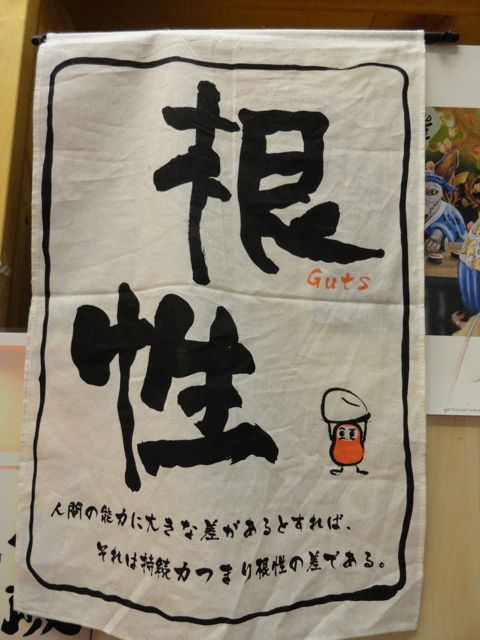 根性
Guts
人間の能力に大きな差があるとすれば、
それは持続力つまり根性の差である。